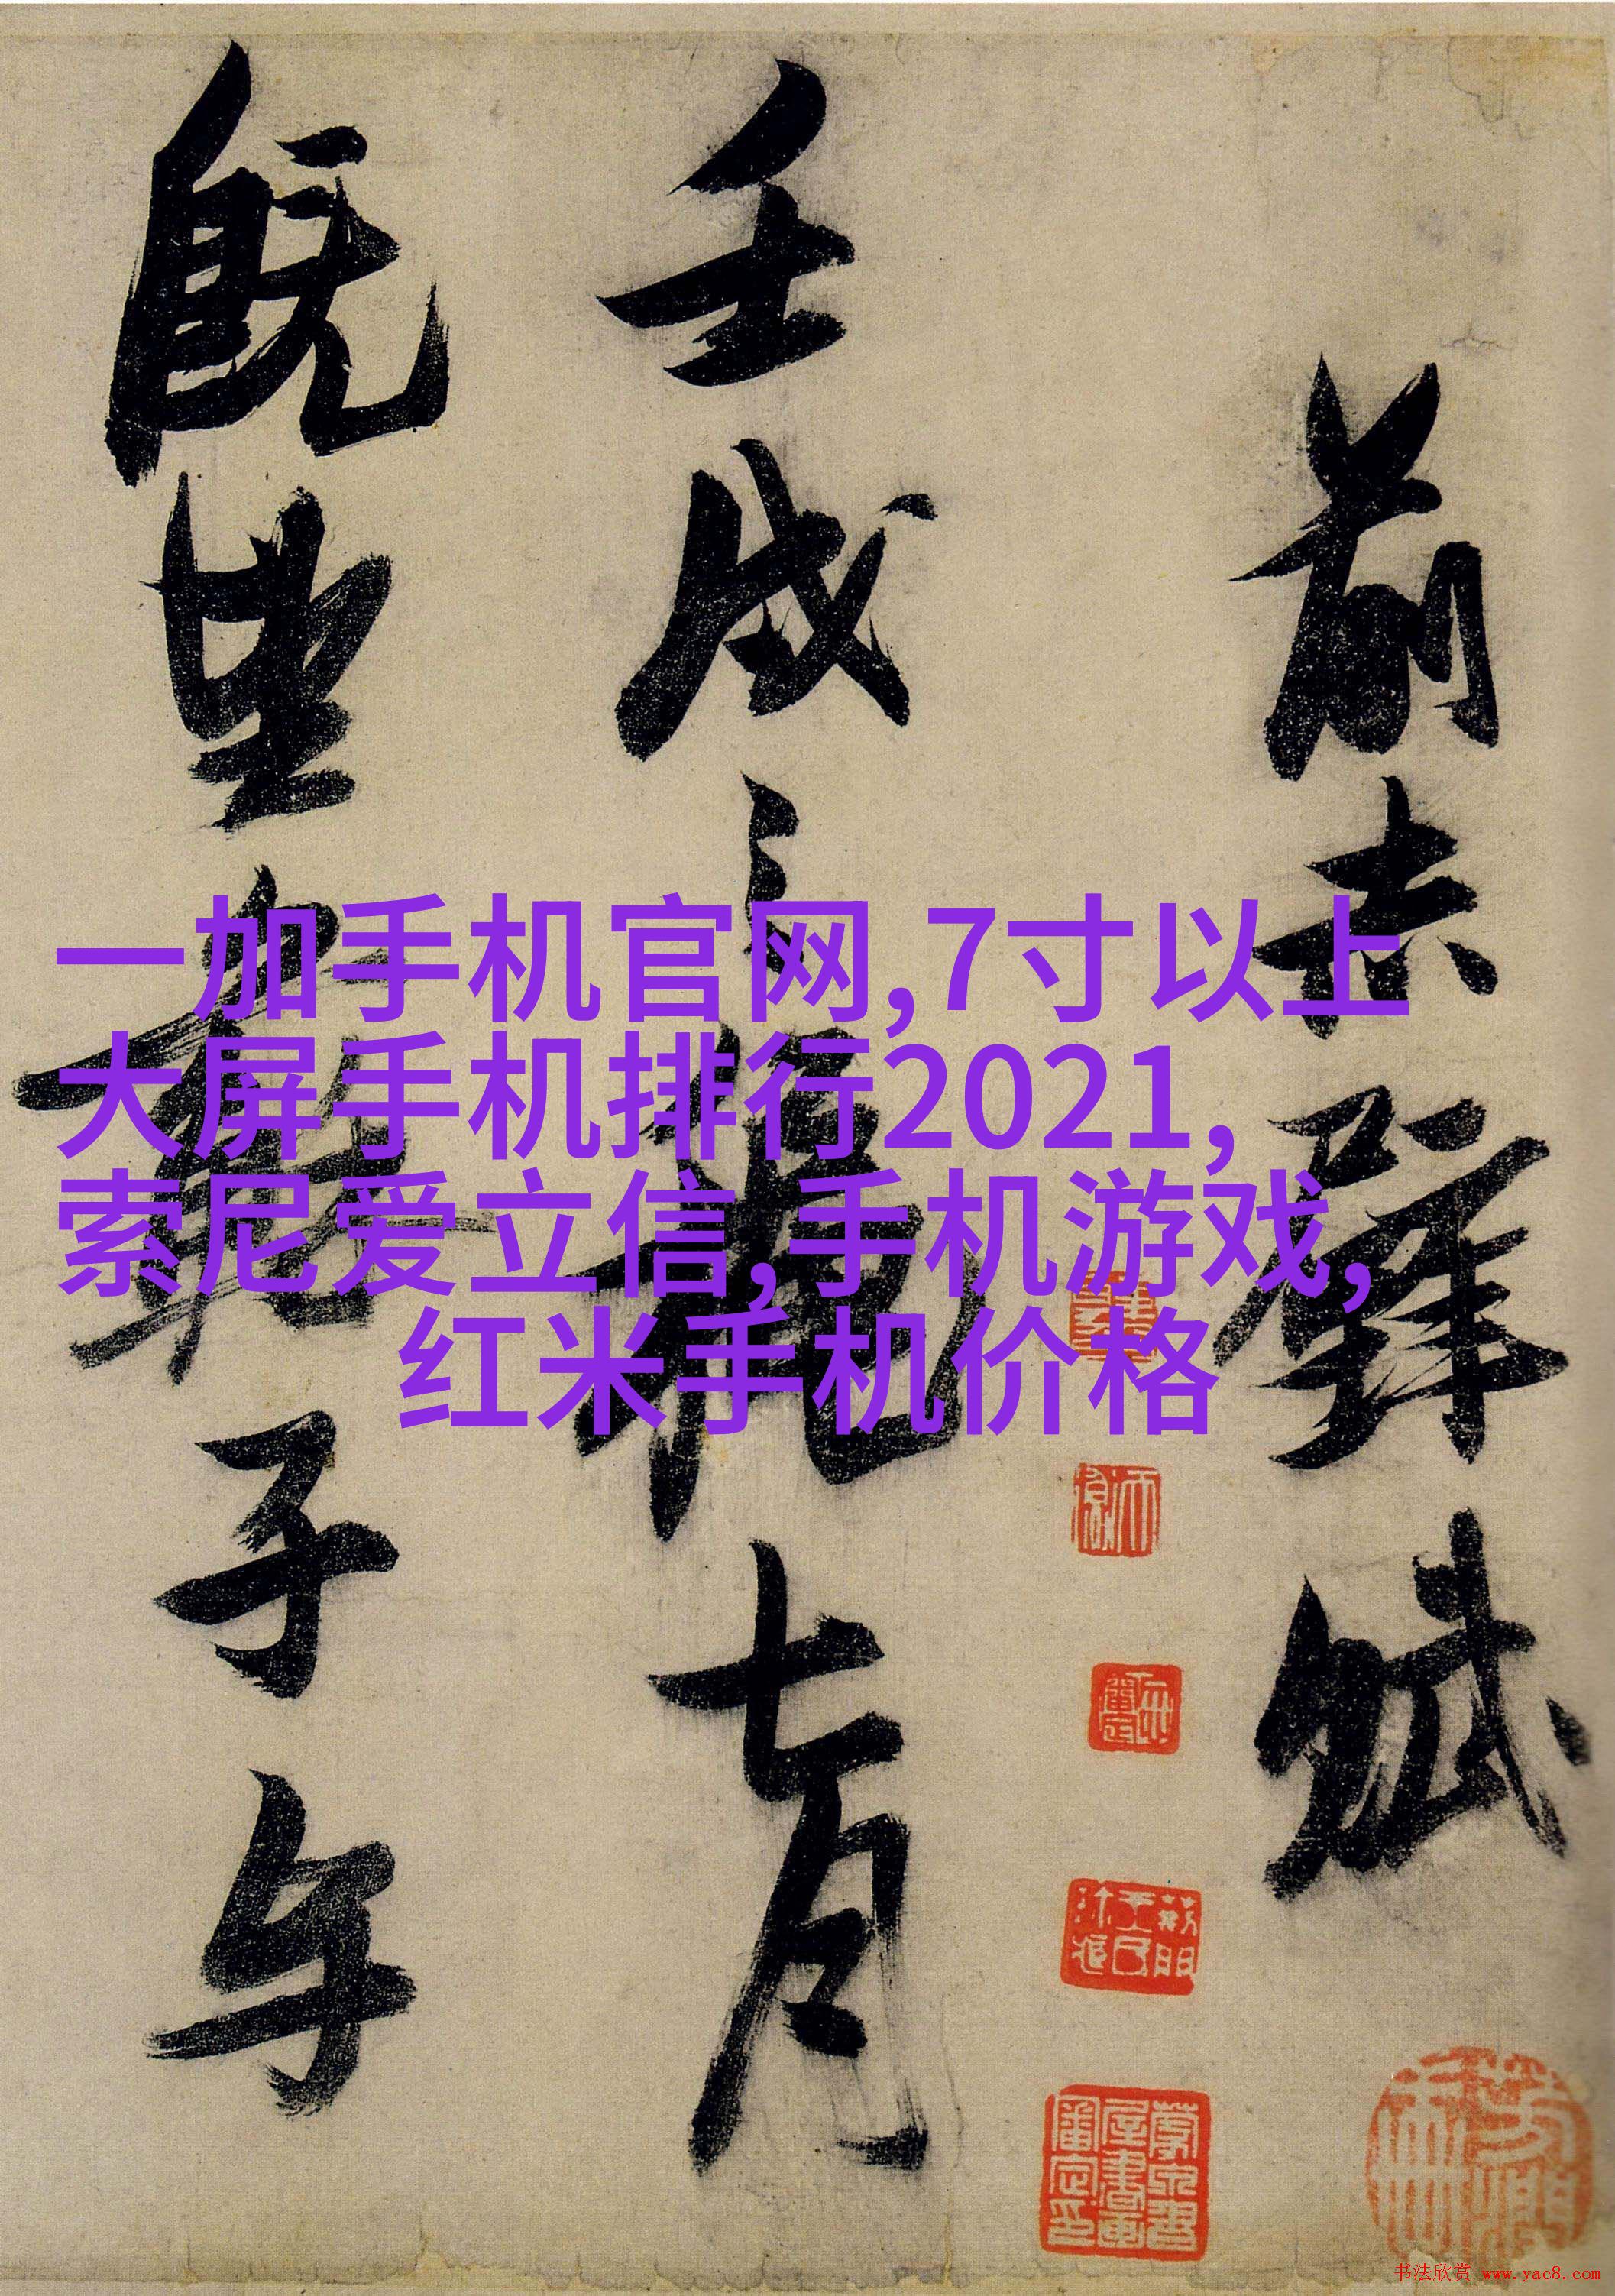 前赤壁賦
壬戌之龝七月
既望蘇子与
一加手机官网,7寸以上
大屏手机排行2021,
索尼爱立信,手机游戏,
红米手机价格
书法欣赏 www.yac8.com